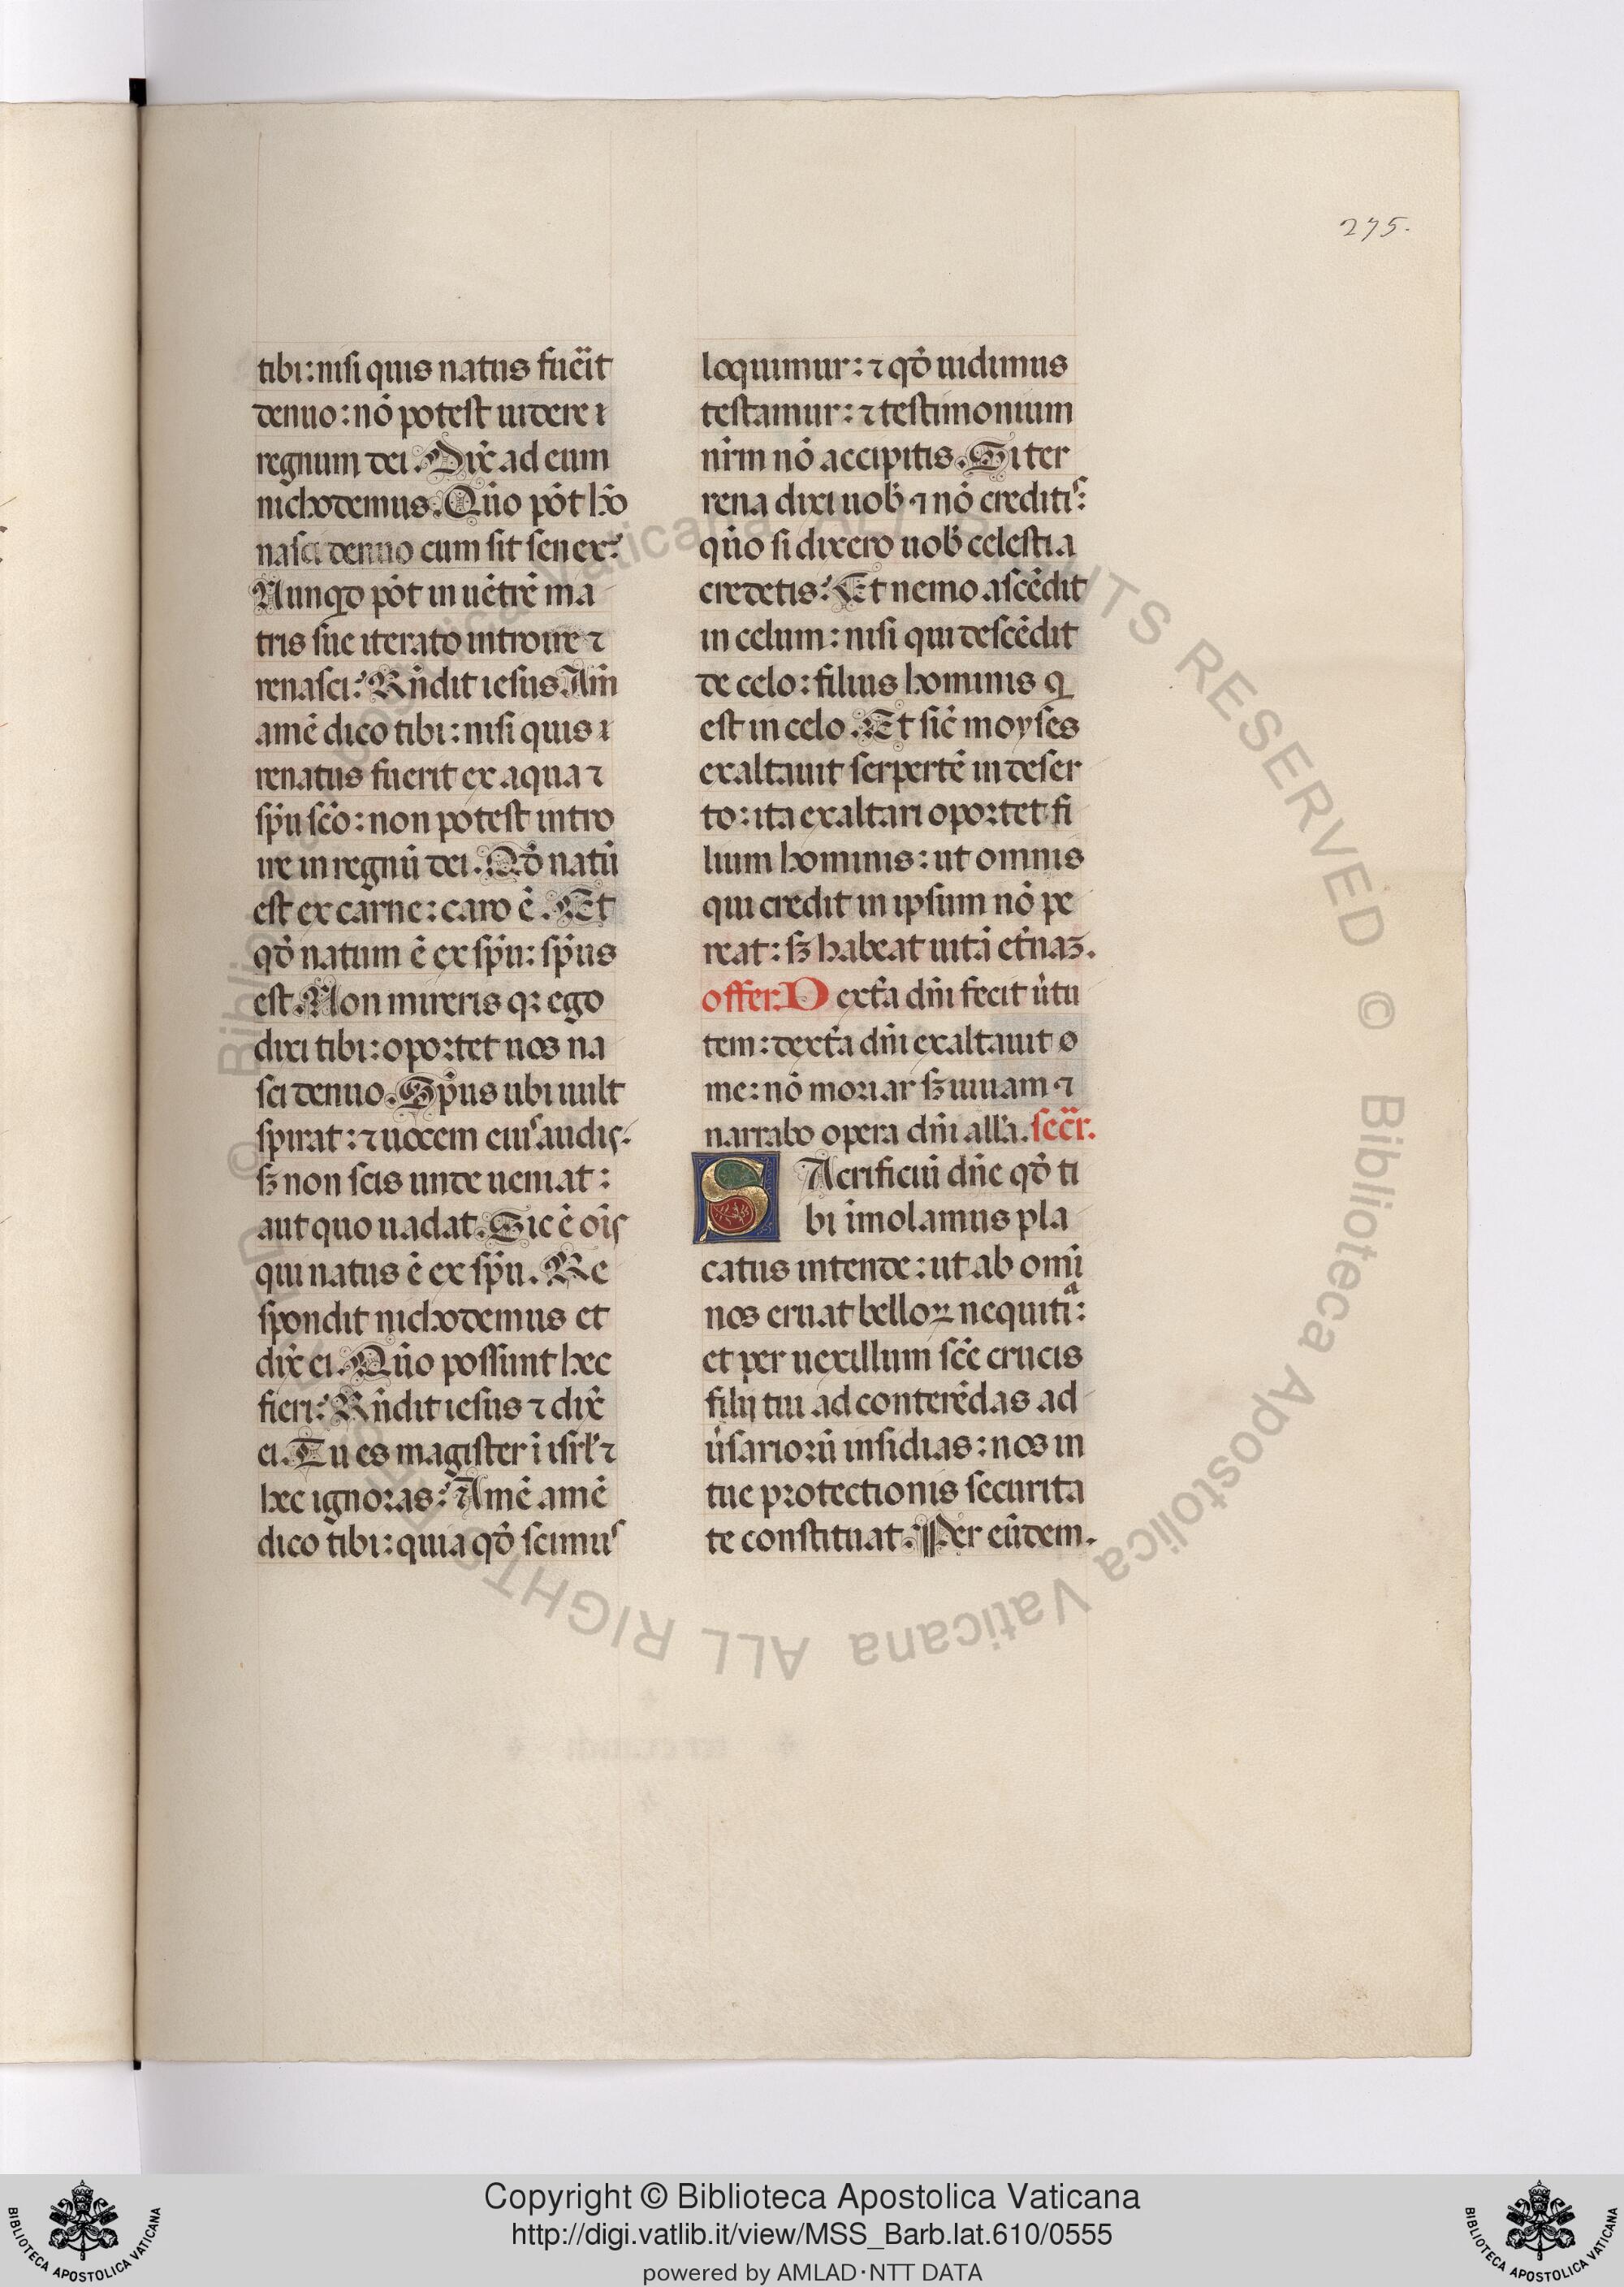 275.
tibi: nisi quis natus fu̾it
denuo: nō potest uidere ı
regnum dei. Dix̄ ad eum
nichodemus. Quō pōt hō
nasci denuo cum sit senex?
Nunqd pōt in uētrē ma
tris sue iterato introire ⁊
renasci? Rn̄dit iesus Am̄
amē dico tibi: nisi quis ı
renatus fuerit ex aqua ⁊
sp̄u scō: non potest intro
ire in regnū dei. Qđ natū
est ex carne: caro ē. Et
qđ natum ē ex sp̄u: sp̄us
est. Non mireris qꝛ ego
dixi tibi: oportet uos na
sci denuo. Sp̄us ubi uult
spirat: ⁊ uocem eiuˢ audis.
sꝫ non scis unde ueniat:
aut quo uadat. Sic ē oīs
qui natus ē ex sp̄u. Re
spondit nichodemus et
dix̄ ei. Quō possunt hec
fieri? Rn̄dit iesus ⁊ dix̄
ei. Tu es magister ī isrl̄ ⁊
hec ignoras? Amē amē
dico tibi: quia qđ scimuˢ
loquimur: ⁊ qđ uidimus
testamur: ⁊ testimonium
nr̄m nō accipitis. Si ter
rena dixi uob̄ ⁊ nō creditiˢ:
quō si dixero uob̄ celestia
credetis? Et nemo ascēdit
in celum: nisi qui descēdit
de celo: filius hominis q
est in celo. Et sic̄ moyses
exaltauit serpertē in deser
to: ita exaltari oportet fi
lium hominis: ut omnis
qui credit in ipsum nō pe
reat: sꝫ habeat uitā et̄naꝫ.
offer. Dext̄a dn̄i fecit u̾tu
tem: dext̄a dn̄i exaltauit o
me: nō moriar sꝫ uiuam ⁊
narrabo opera dn̄i all̄a. secr̄.
SAcrificiū dn̄e qđ ti
bi īmolamus pla
catus intende: ut ab omī
nos eruat belloꝝ nequitiᵃ:
et per uexillum scē crucis
filij tui ad conterēdas ad
u̾sariorū insidias: nos in
tue protectionis securita
te constituat. Per eūdem.
© Biblioteca Apostolica Vaticana ALL RIGHTS RESERVED
© Biblioteca Apostolica Vaticana ALL RIGHTS RESERVED
BIBLIOTECA APOSTOLICA VATICANA
Copyright © Biblioteca Apostolica Vaticana
http://digi.vatlib.it/view/MSS_Barb.lat.610/0555
powered by AMLAD·NTT DATA
BIBLIOTECA APOSTOLICA VATICANA